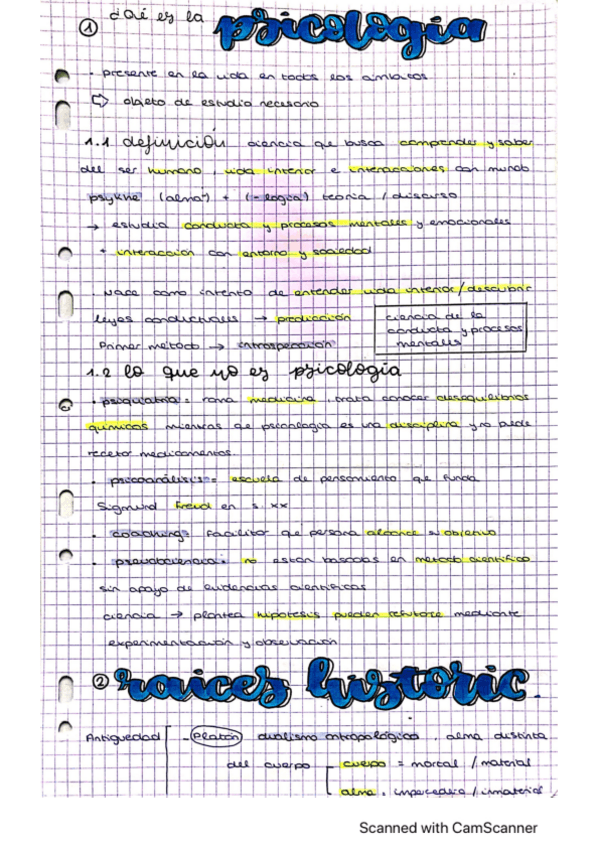 1 ¿Qué es la psicología
· presente en la vida en todos los ámbitos
⇨ objeto de estudio necesario
1.1 definición ciencia que busca comprender y saber
del ser humano, vida interior e interacciones con mundo
psykhe (alma) + (-logia) teoria / discurso
→ estudia conducta y procesos mentales y emocionales
+ interacción con entorno y sociedad
· Nace como intento de entender vida interior/descubrir
leyes conductuales → predicción
Primer método → introspección
ciencia de la
conducta y procesos
mentales
1.2 lo que no es psicología
· psiquiatría: rama medicina, trata conocer desequilibrios
químicos mientras que psicología es una disciplina y no puede
recetar medicamentos
· psicoanálisis = escuela de pensamiento que funda
Sigmund Freud en s. XX
· coaching: facilitar que persona alcance su objetivo
· pseudociencia: no están basadas en método científico
sin apoyo de evidencias científicas
ciencia → plantea hipótesis pueden refutarse mediante
experimentación y observación
2 raices historic.
Antiguedad - Platón dualismo antropológico, alma distinta
del cuerpo cuerpo = mortal / material
alma, / inmaterial
Scanned with CamScanner